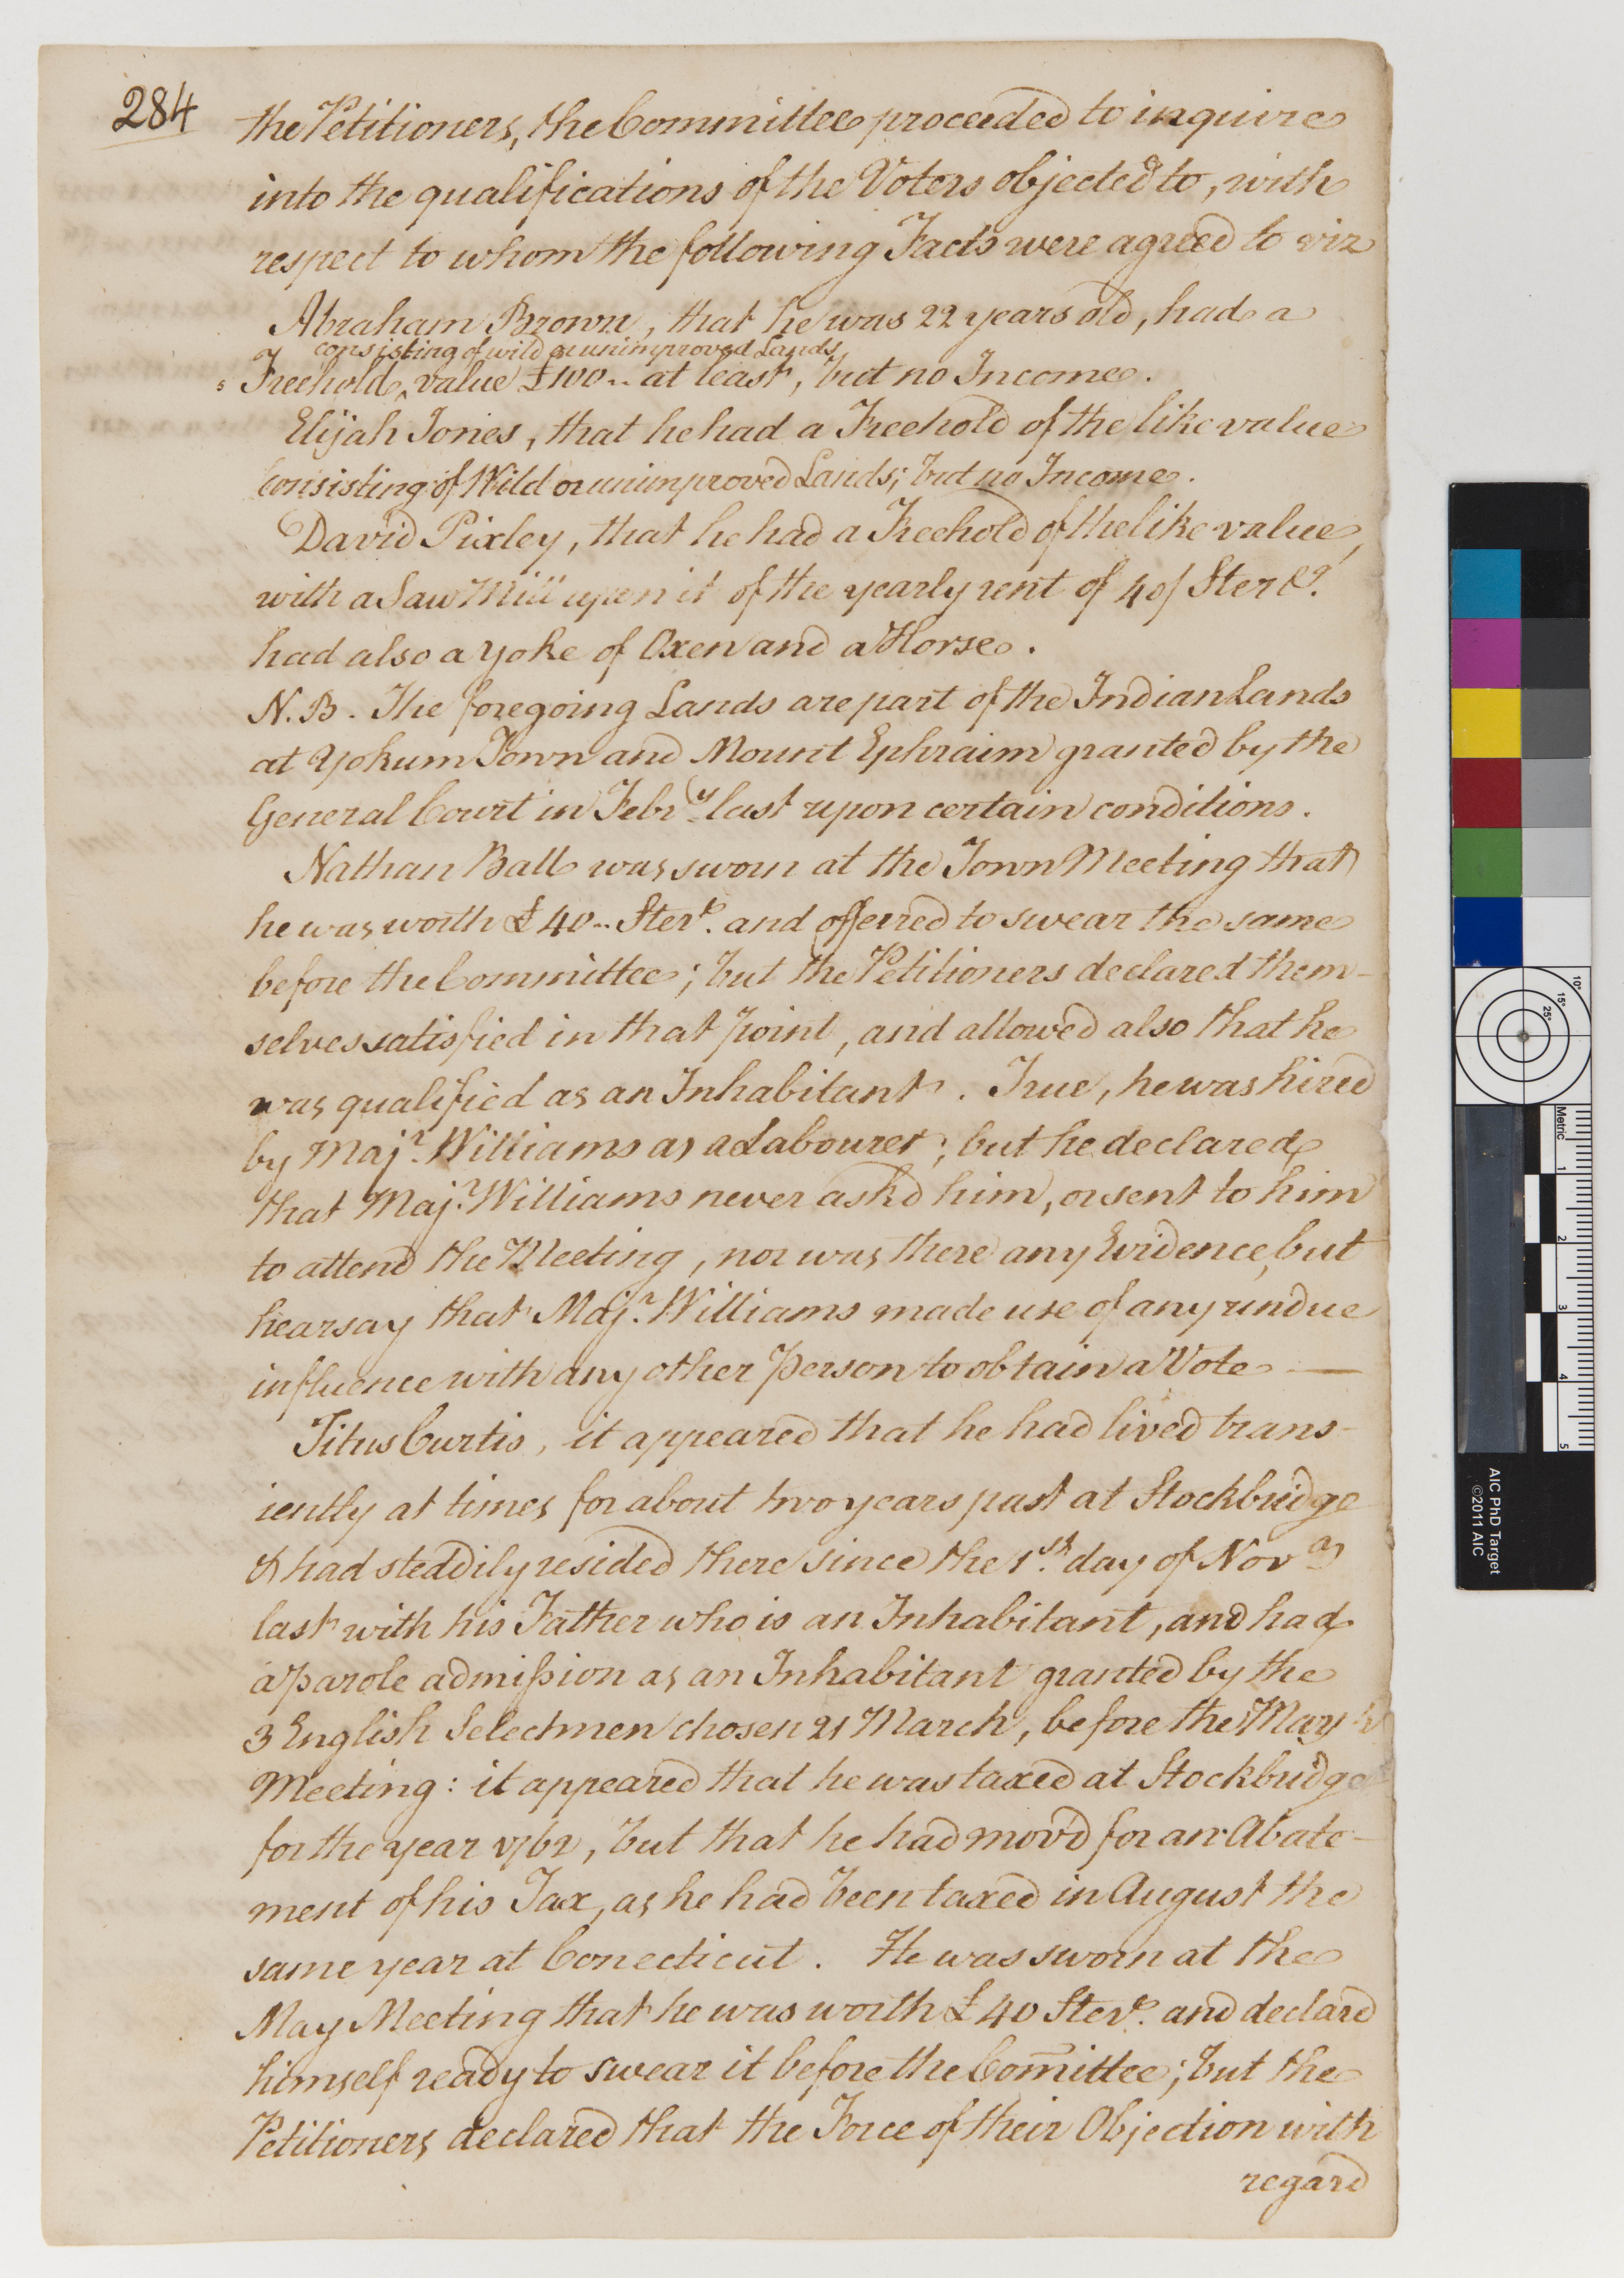 284
the Petitioners, the Committee proceeded to inquire
into the qualifications of the Voters objected to, with
respect to whom the following Facts were agreed to viz
Abraham Brown, that he was 22 years old, had a
consisting of wild or unimproved Lands
Freehold ‸ value £100.. at least, but no Income.
Elijah Jones, that he had a Freehold of the like value
Consisting of Wild or unimproved Lands; but no Income.
David Pixley, that he had a Freehold of the like value,
with a Saw Mill upon it of the yearly rent of 40/ Sterlg.
had also a Yoke of Oxen and a Horse.
N.B. The foregoing Lands are part of the Indian Lands
at Yokum Town and Mount Ephraim granted by the
General Court in Febry. last upon certain conditions.
Nathan Ball was sworn at the Town Meeting that
he was worth £40.. Sterg. and offerred to swear the same
before the Committee; but the Petitioners declared them-
selves satisfied in that point, and allowed also that he
was qualified as an Inhabitant. True, he was hired
by Majr. Williams as a Labourer; but he declared
that Majr. Williams never ask'd him, or sent to him
to attend the Meeting, nor was there any Evidence, but
hearsay that Majr. Williams made use of any undue
influence with any other Person to obtain a Vote —
Titus Curtis, it appeared that he had lived trans-
iently at times for about two years past at Stockbridge
& had steddily resided there since the 1st. day of Novr.
last with his Father who is an Inhabitant, and had
a parole admission as an Inhabitant granted by the
3 English Selectmen chosen 21 March, before the May
Meeting: it appeared that he was taxed at Stockbridge
for the year 1762, but that he had mov'd for an Abate-
ment of his Tax, as he had been taxed in August the
same year at Conecticut. He was sworn at the
May Meeting that he was worth £40 Sterg. and declard
himself ready to swear it before the Com̅ittee; but the
Petitioners declared that the Force of their Objection with
regard
10°
15°
25°
Metric
1
2
3
4
5
AIC PhD Target
©2011 AIC